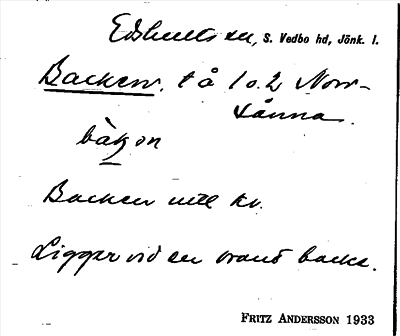 Edshults sn, S. Vedbo hd, Jönk. l.
Backen. t å 1 o. 2 Norr-
tånna.
bàk̠on
Backen utt kv.
Ligger vid en brant backe.
FRITZ ANDERSSON 1933